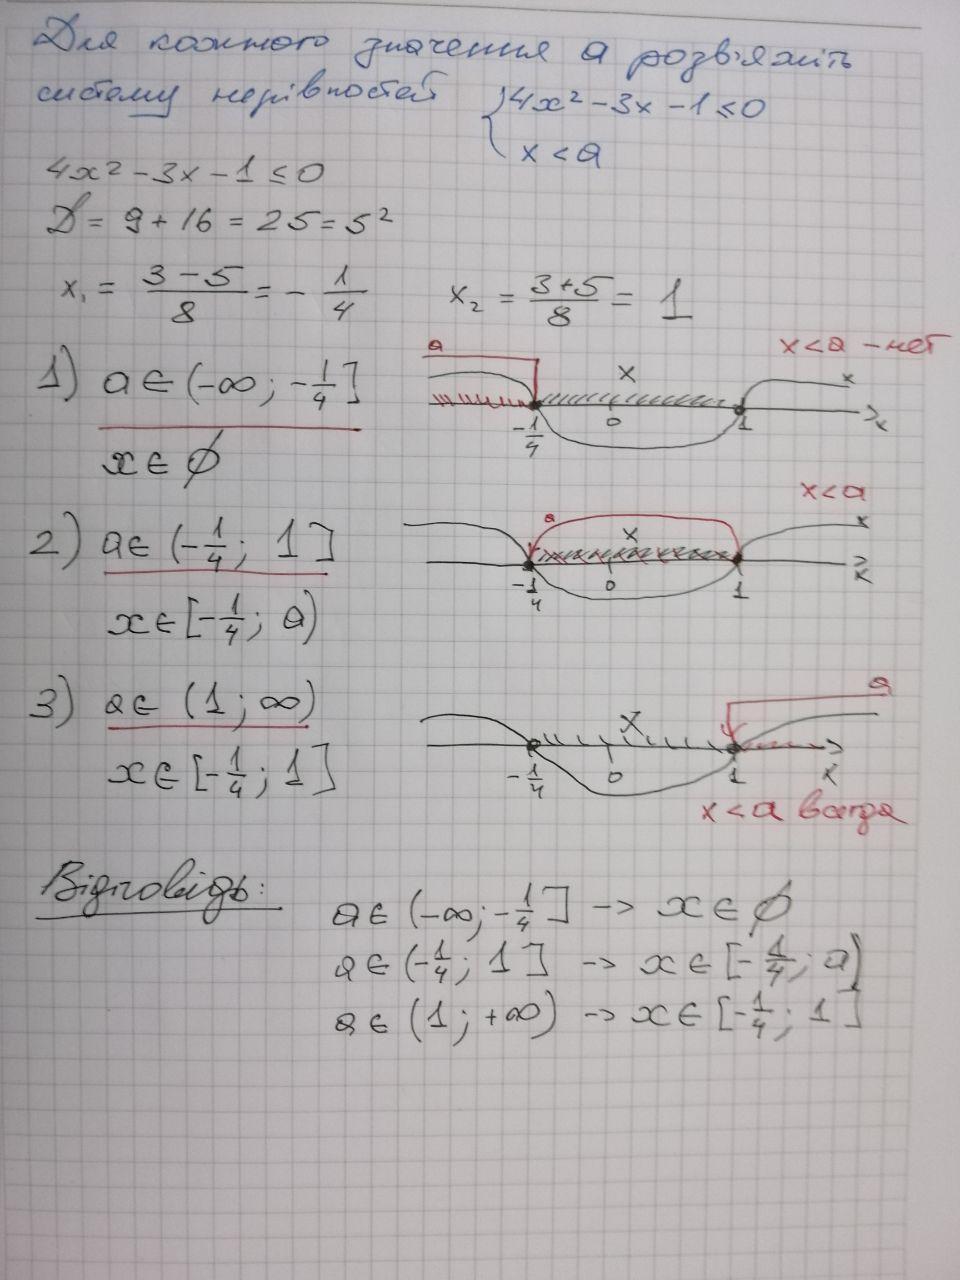 Для кожного значення a розв'яжіть
систему нерівностей { 4x² - 3x - 1 ≤ 0
x < a
4x² - 3x - 1 ≤ 0
D = 9 + 16 = 25 = 5²
x₁ = (3 - 5)/8 = - 1/4    x₂ = (3+5)/8 = 1
x < a - нет
1) a ∈ (-∞; -1/4]
a x x -1/4 0 1 x
x ∈ ∅
x < a
2) a ∈ (-1/4; 1]
a x x -1/4 0 1 x
x ∈ [-1/4; a)
3) a ∈ (1; ∞)
a x -1/4 0 1 x
x ∈ [-1/4; 1]
x < a всегда
Відповідь:
a ∈ (-∞; -1/4] -> x ∈ ∅
a ∈ (-1/4; 1] -> x ∈ [-1/4; a)
a ∈ (1; +∞) -> x ∈ [-1/4; 1]